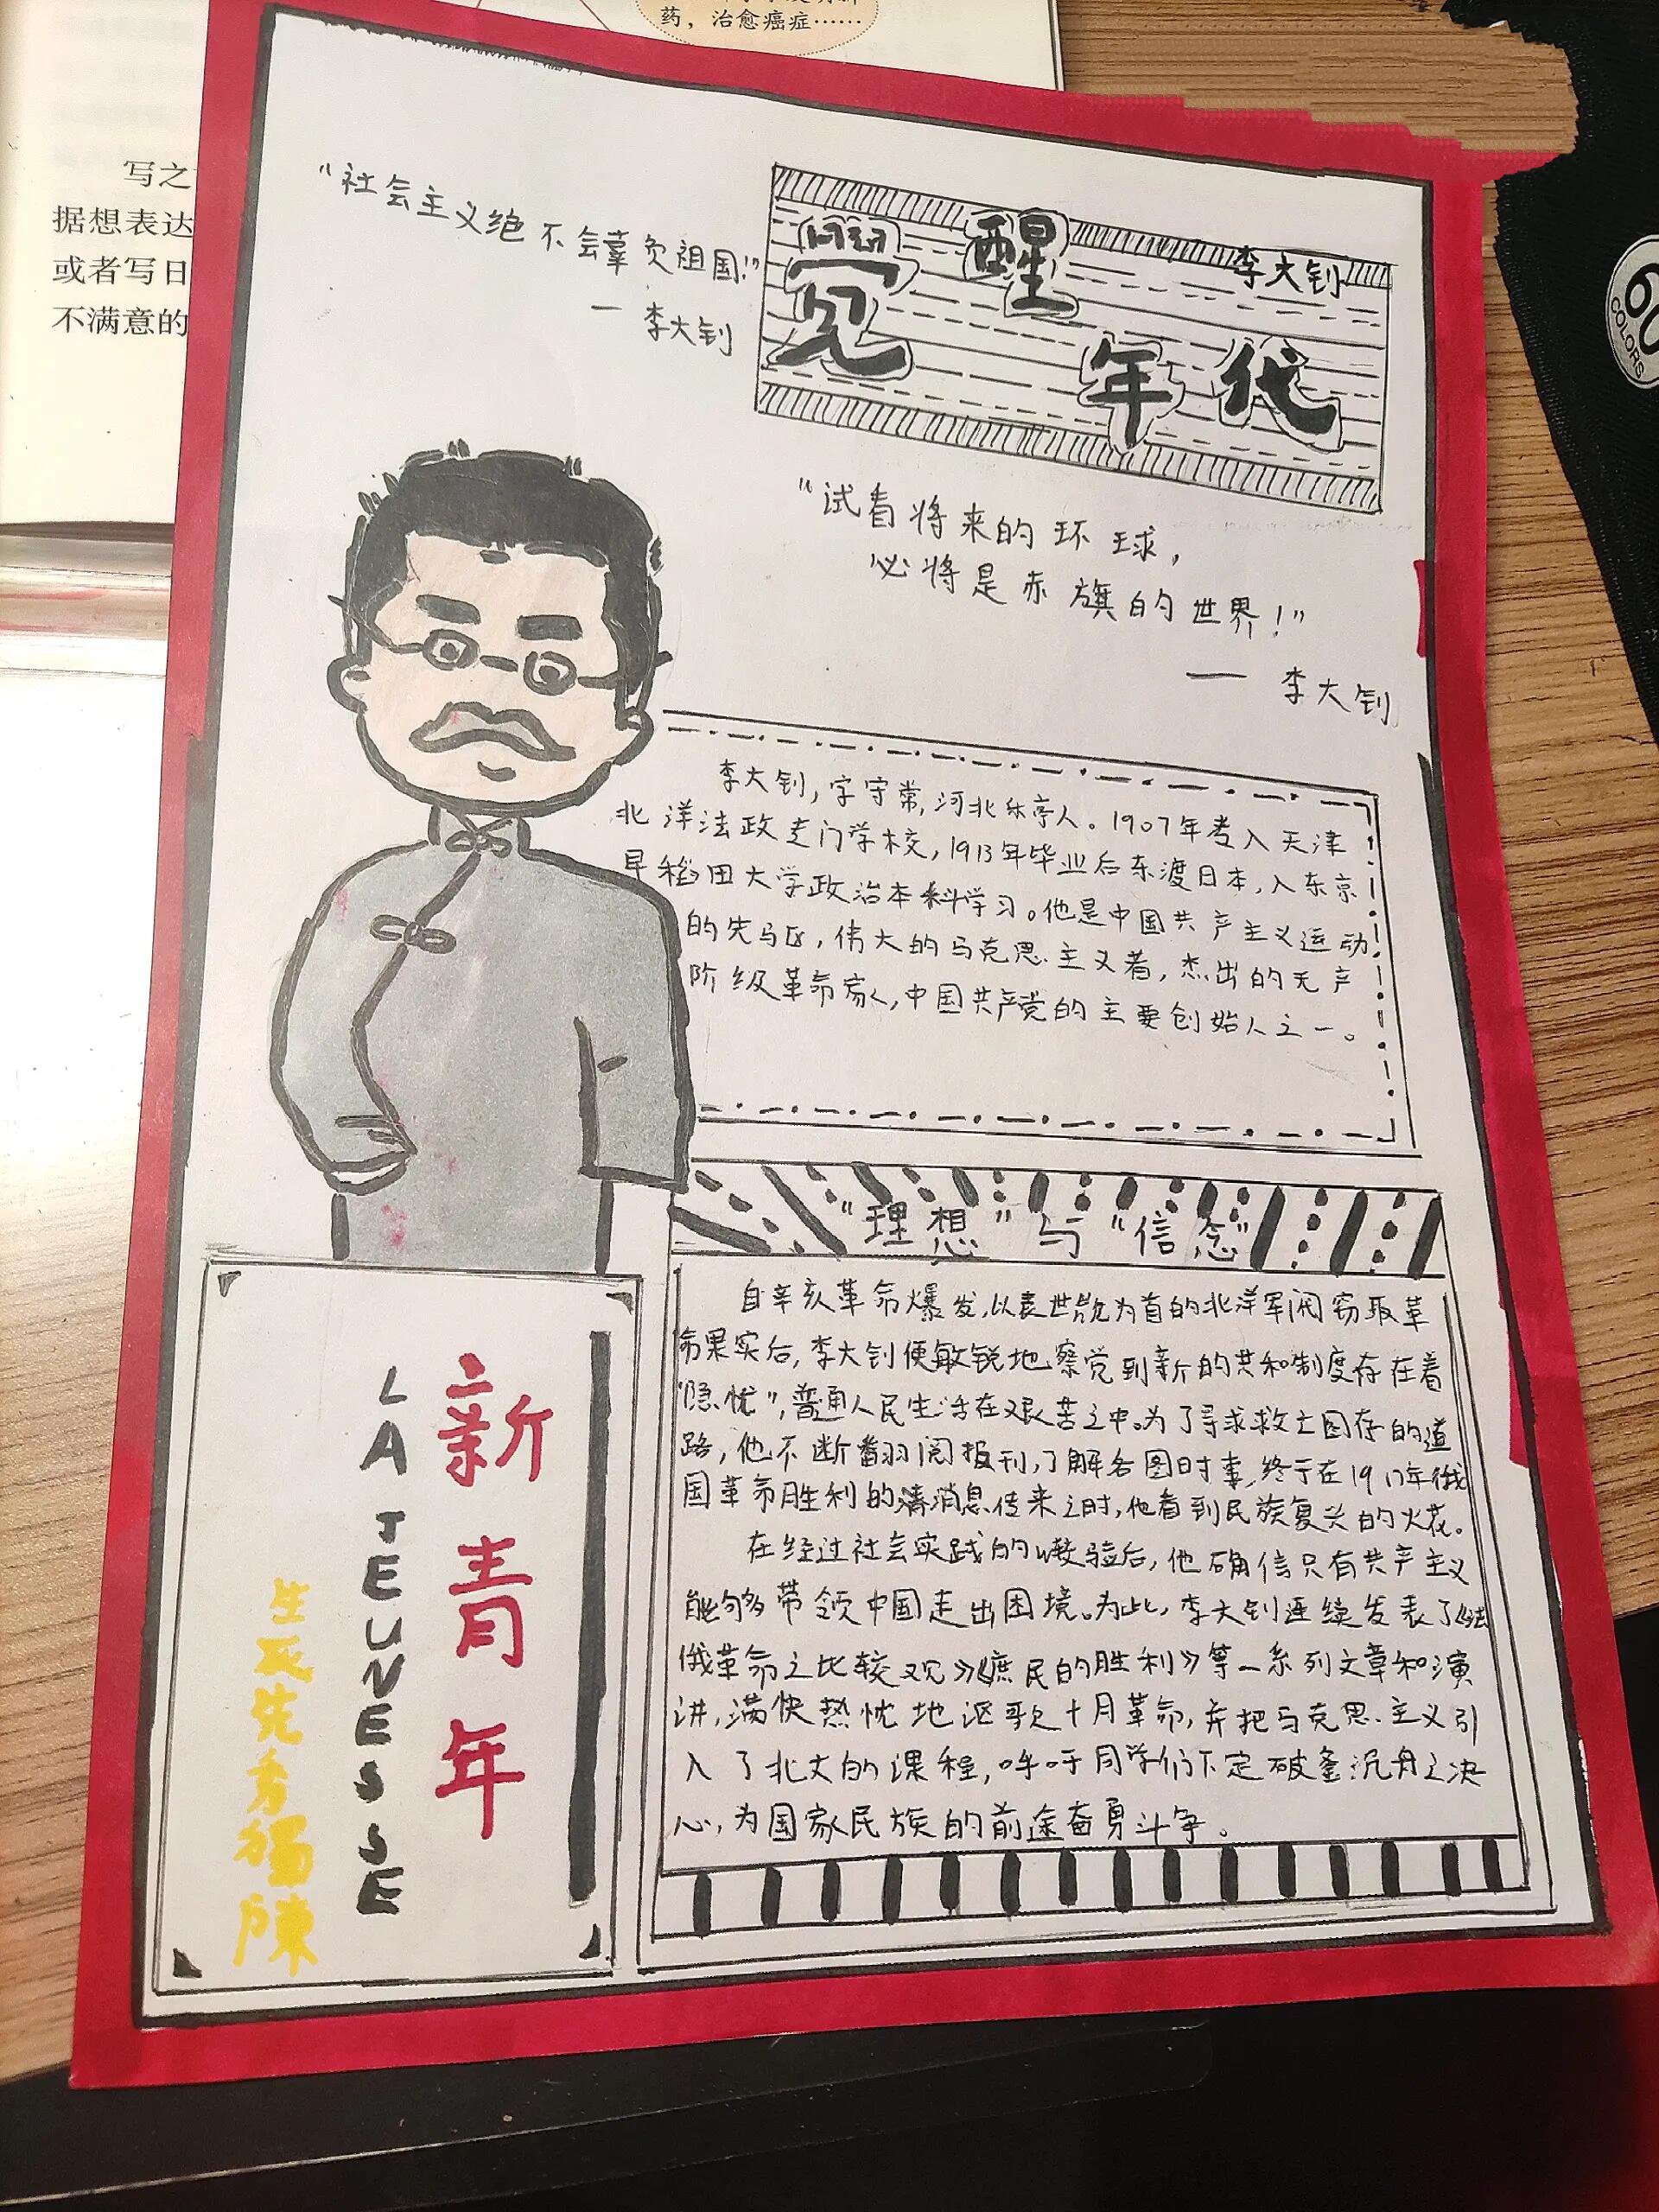 药，治愈癌症……
写之
据想表达
或者写日
不满意的
60
COLORS
“社会主义绝不会辜负祖国!”
— 李大钊
覺醒
年代
李大钊
“试看将来的环球，
必将是赤旗的世界！”
— 李大钊
李大钊，字守常，河北乐亭人。1907年考入天津
北洋法政专门学校，1913年毕业后东渡日本，入东京
早稻田大学政治本科学习。他是中国共产主义运动
的先马区，伟大的马克思主义者，杰出的无产
阶级革命家，中国共产党的主要创始人之一。
“理想”与“信念”
自辛亥革命爆发，以袁世凯为首的北洋军阀窃取革
命果实后，李大钊便敏锐地察觉到新的共和制度存在着
“隐忧”，普通人民生活在艰苦之中。为了寻求救亡图存的道
路，他不断翻阅报刊，了解各国时事，终于在1917年俄
国革命胜利的消息传来之时，他看到民族复兴的火花。
在经过社会实践的检验后，他确信只有共产主义
能够带领中国走出困境。为此，李大钊连续发表了《法
俄革命之比较观》《庶民的胜利》等一系列文章和演
讲，满快热忱地讴歌十月革命，并把马克思主义引
入了北大的课程，呼吁同学们下定破釜沉舟之决
心，为国家民族的前途奋勇斗争。
新青年
LA JEUNESSE
陳獨秀先生